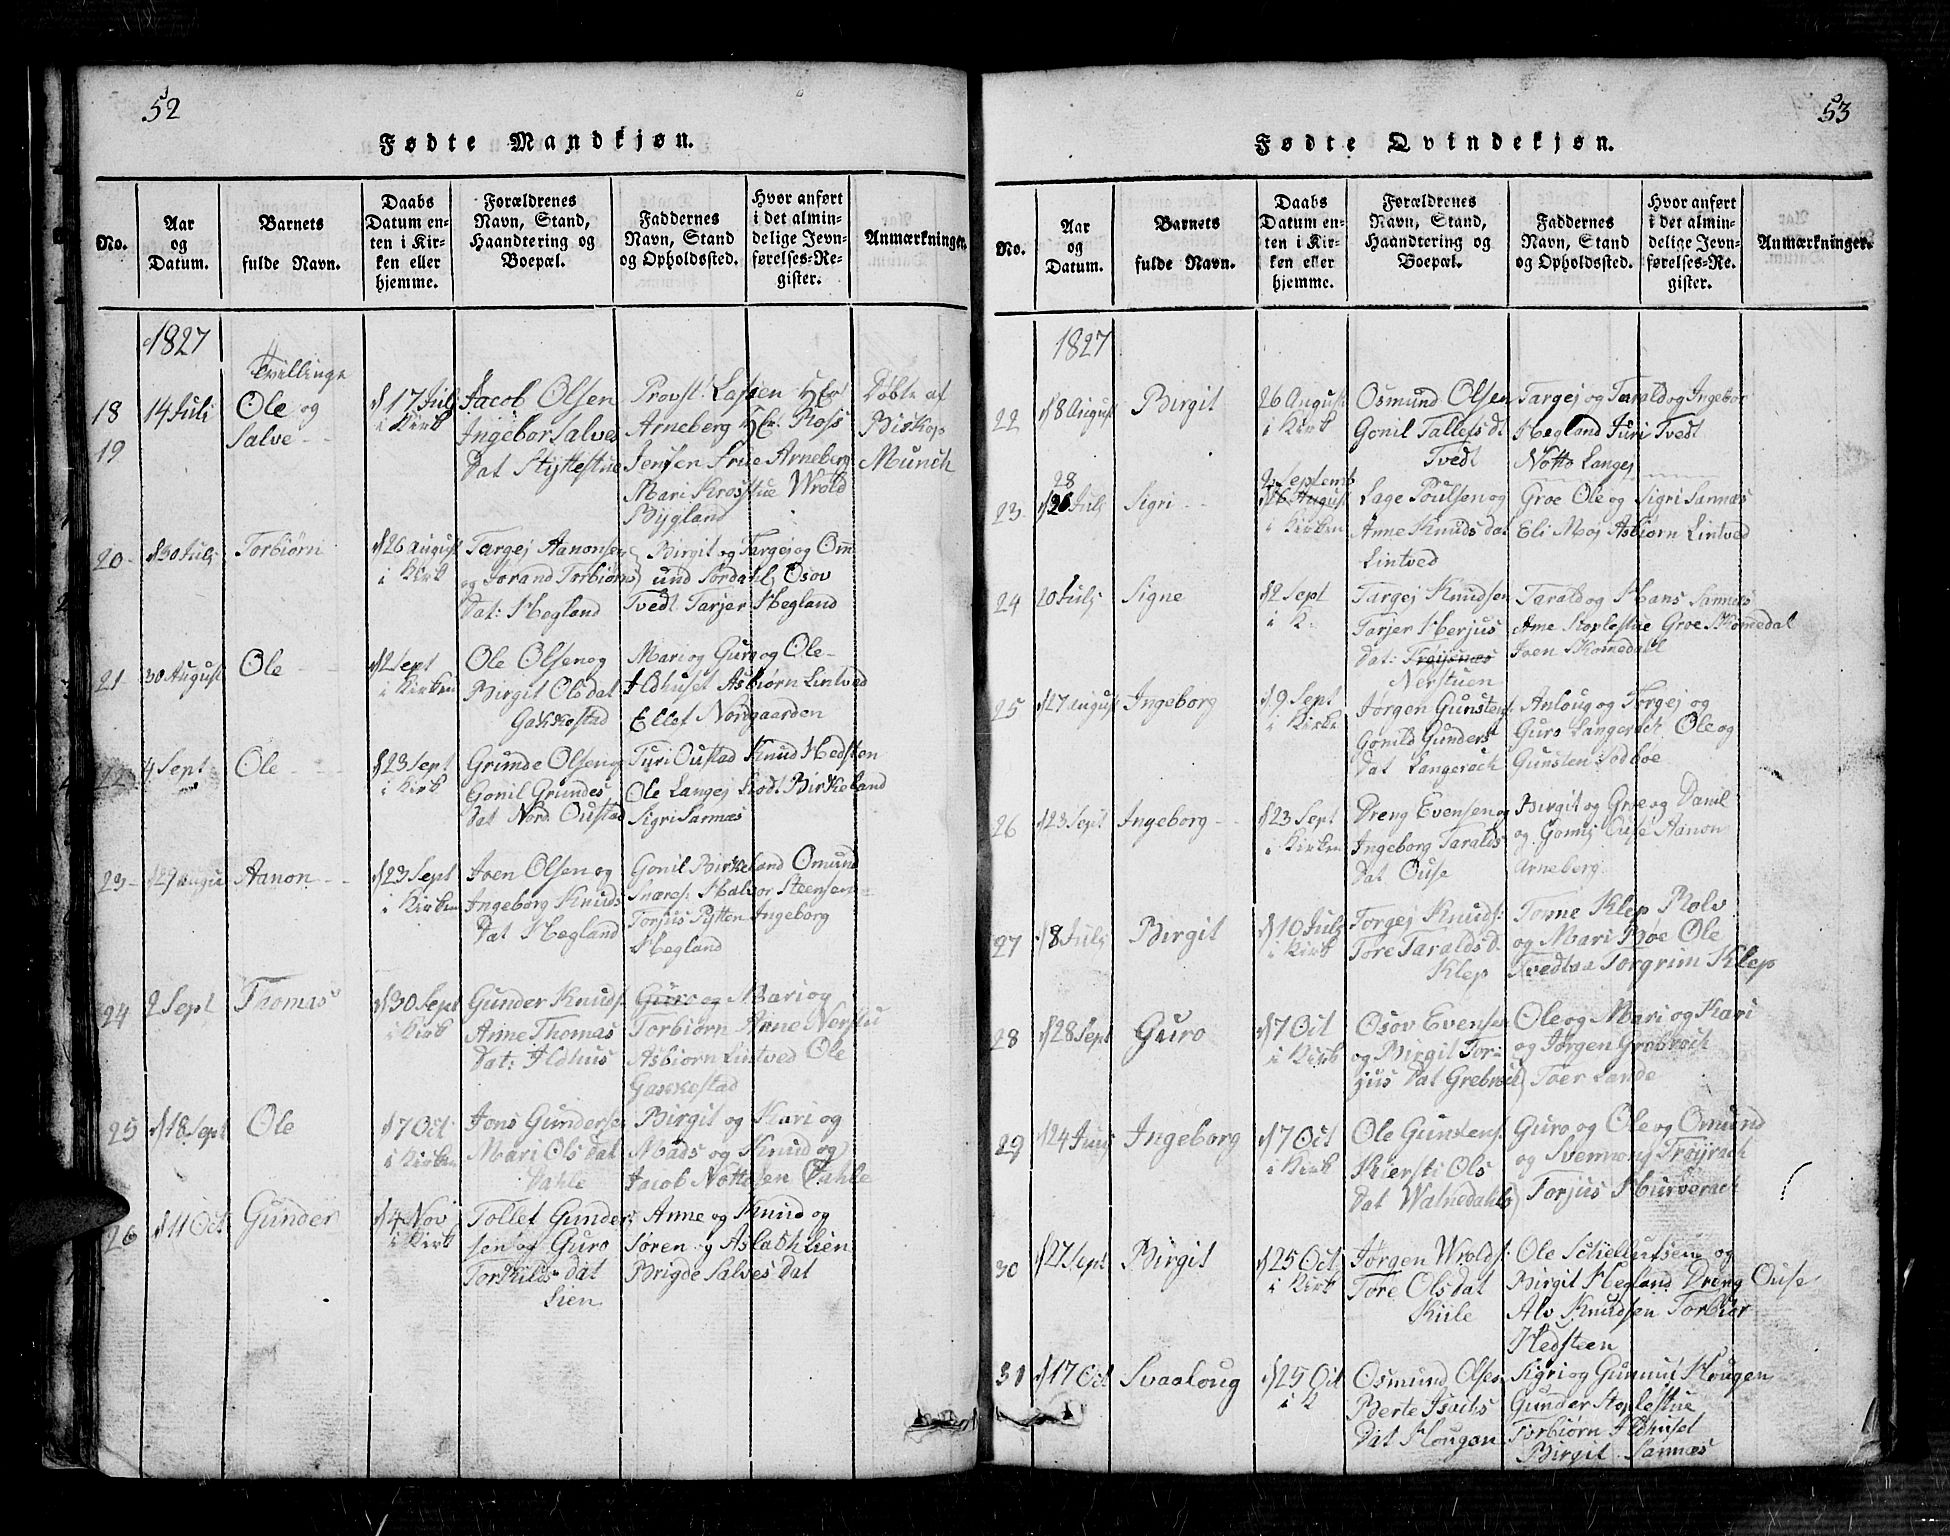 52
Fødte Mandkjøn.
No.
Aar
og
Datum.
Barnets
fulde Navn.
Daabs
Datum en-
ten i Kir-
ken eller
hjemme.
Forældrenes
Navn, Stand,
Haandtering og
Boepæl.
Faddernes
Navn, Stand
og Opholdssted.
Hvor anført
i det almin-
delige Jevn-
førelses-Re-
gister.
Anmærkninger.
1827
Tvillinge
18
19
14 Juli
Ole og
Salve
d 17 Julj
i Kirk
Jacob Olsen
Ingebor Salves
Dat Styttestue
Provst Lassen Hr
Arneberg Hr. Ross
Jensen Frue Arneberg
Mari Krosstue Wrold
Bygland
Døbte af
Biskop
Munch
20
d 30 Julj
Torbiørn
d 26 August
i Kirk
Targej Aanonsen
og Jorand Torbiørns
Dat: Hegland
Birgit og Targej og Om
und Sordahl, Osov
Tvedt Tarjer Hegland
21
30 August
Ole
d 2 Sept
i Kirken
Ole Olsen og
Birgit Ols dat
Gakkestad
Mari og Guro og Ole
Aldhuset Asbiørn Lintved
Ellef Nordgaarden
22
4 Sept
Ole
d 23 Sept
i Kirk
Grunde Olsen og
Gonil Grundes
Dat Nord. Oustad
Tyri Oustad Knud Hedsten
Ole Langej Birkeland
Sigri Sannæs
23
d 29 Augu
Aanon
d 23 Sept
i Kirken
Aven Olsen og
Ingeborg Knuds
Dat Hegland
Gonil Birkeland Omund
Snares: Halvor Steensen
Torjus Pytten Ingeborg
Hegland
24
2 Sept
Thomas
d 30 Sept
i Kirk
Gunder Knuds.
Anne Thomas
Dat: Aldhus
Guro og Mari og
Torbiørn Anne Nerstu
Asbiørn Lintved Ole
Gakkestad
25
d 18 Sept
Ole
d 7 Oct
i Kirken
Jens Gunderse
Mari Ols Dat
Dahle
Birgit og Kari og
Mads og Knud og
Jacob Nottesen Dahle
26
d 11 Oct
Gunder
d 4 Nov
i Kirk
Tollef Gunder
sen og Guro
Torkilds Dat
Lien
Anne og Knud og
Søren og Aslach Lien
Brigde Salves Dat
53
Fødte Qvindekjøn.
No.
Aar
og
Datum.
Barnets
fulde Navn.
Daabs
Datum en-
ten i Kir-
ken eller
hjemme.
Forældrenes
Navn, Stand,
Haandtering og
Boepæl.
Faddernes
Navn, Stand
og Opholdssted.
Hvor anført
i det almin-
delige Jevn-
førelses-Re-
gister.
Anmærkninger.
1827
22
d 8 August
Birgit
26 August
i Kirk
Osmund Olsen
Gonil Tallefs dt
Tvedt
Targej og Tarald og Ingebor
Hegland Juri Tvedt
Notto Langej
23
28
d 26 Julj
Sigri
2 Septemb
d 26 August
i Kirken
Lage Poulsen og
Anne Knuds dat
Lintved
Groe Ole og Sigri Sannæs
Eli Moj Asbiorn Lintved
24
20 Julj
Signe
d 2 Sept
i K.
Targej Knudsen
Tarjer Herjus
dat: Frøysnæs
Nerstuen
Tarald og Hans Sannæs
Ame Stoplestue Groe Skomedal
Iven Skomedal
25
d 27 August
Ingeborg
d 9 Sept
i Kirke
Jørgen Gunstens.
Gonild Gunders
Dat Langerack
Anloug og Torgej og
Guro Langerack, Ole og
Gunsten Sodboe
26
d 23 Sept
Ingeborg
d 23 Sept
i Kirken
Dreng Evensen og
Ingeborg Taralds
Dat Ouse
Birgit og Groe og Danil
og Gonij Ouse Aanon
Arneberg
27
d 8 Julj
Birgit
d 10 Julj
i Kirk
Torgej Knuds:
Tore Taralds d.
Klep
Tonne Klep Rolv
og Mari Boe Ole
Tvedtaa Torgrim Klep
28
d 28 Sept
Guro
d 7 Oct
i Kirk
Osov Evensen
og Birgit Tor=
jus Dat Grebrok
Ole og Mari og Kari
og Jørgen Grovroch
Toer Lande
29
d 24 Junj
Ingeborg
d 7 Oct
i Kirk
Ole Gunstens.
Kiersti Ols
Dat Walnedahls
Guro og Ole og Omund
og Svennung Frøyrack
Torjus Hurverack
30
d 27 Sept
Birgit
d 25 Oct
i Kirk
Jørgen Wrolds.
Tore Ols dat
Kiile
Ole Schiellufsen og
Birgit Hegland Dreng Ouse
Alv Knudsen Torbiør
Hedsteen
31
d 17 Oct
Svaaloug
d 25 Oct
i K
Osmund Olsen
Berte Isachs
Dat Hougen
Sigri og Gunuld Hougen
Gunder Stoplestue
Torbiørn Aldhuset
Birgit Sannæs